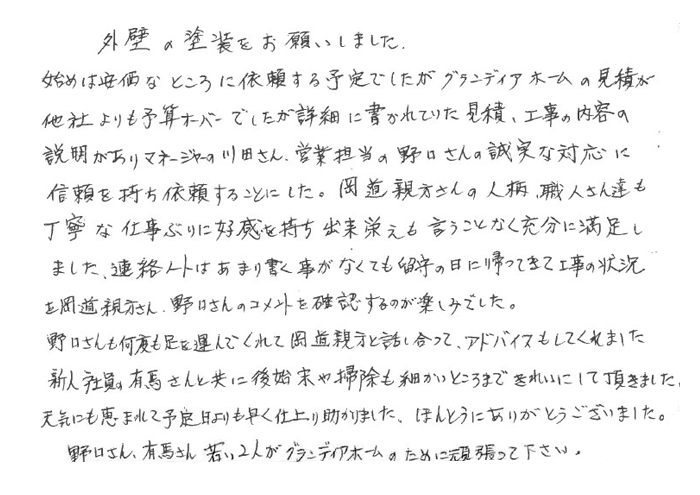 外壁の塗装をお願いしました.
始めは安価なところに依頼する予定でしたがグランディアホームの見積が
他社よりも予算オーバーでしたが詳細に書かれていた見積、工事の内容の
説明がありマネージャーの川田さん、営業担当の野口さんの誠実な対応に
信頼を持ち依頼することにした。岡道親方さんの人柄、職人さん達も
丁寧な仕事ぶりに好感を持ち出来栄えも言うことなく充分に満足し
ました、連絡ノートはあまり書く事がなくても留守の日に帰ってきて工事の状況
を岡道親方さん、野口さんのコメントを確認するのが楽しみでした。
野口さんも何度も足を運んでくれて岡道親方と話し合って、アドバイスもしてくれました
新人社員の有馬さんと共に後始末や掃除も細かいところまできれいにして頂きました。
天気にも恵まれて予定日よりも早く仕上り助かりました、ほんとうにありがとうございました。
野口さん、有馬さん若い2人がグランディアホームのために頑張って下さい。